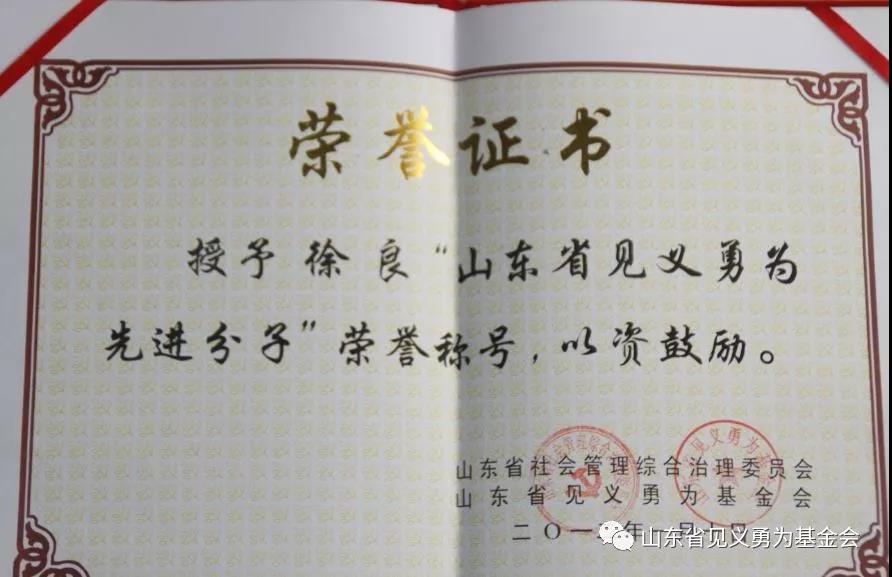 荣誉证书
授予徐良“山东省见义勇为
先进分子”荣誉称号，以资鼓励。
山东省社会管理综合治理委员会
山东省见义勇为基金会
二〇一
山东省见义勇为基金会